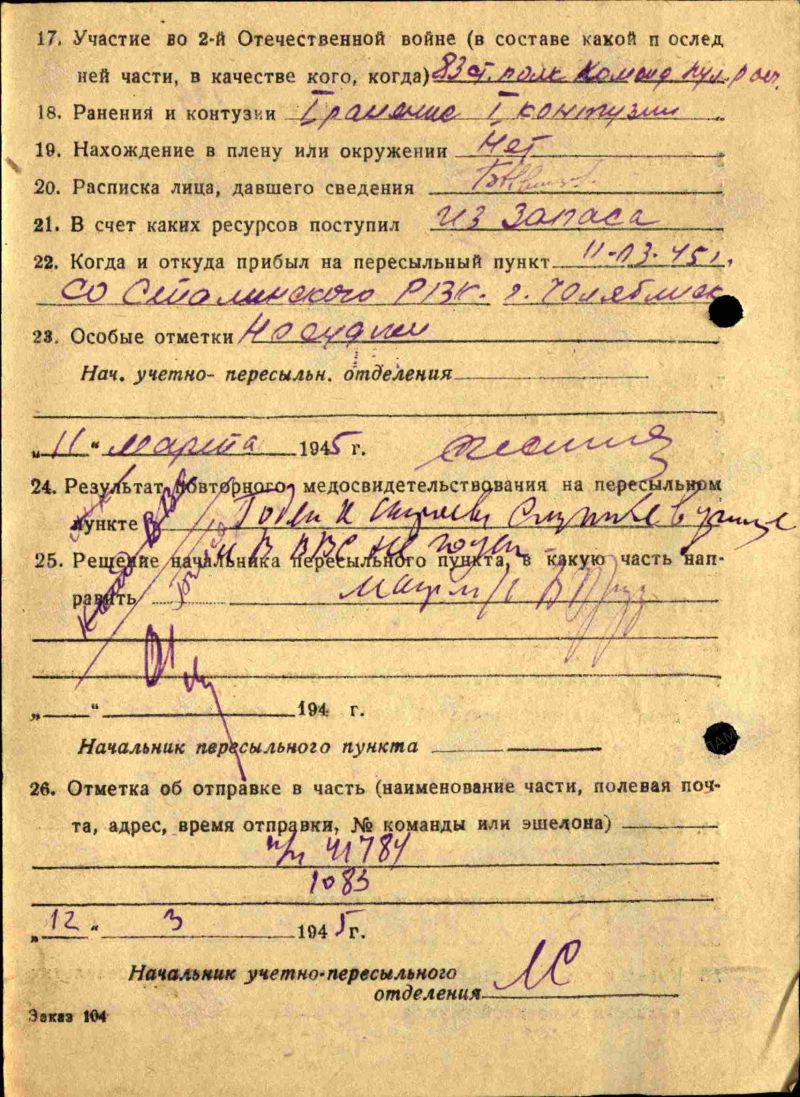 17. Участие во 2-й Отечественной войне (в составе какой п ослед
ней части, в качестве кого, когда) 83 ст. полк Команд пул. р
18. Ранения и контузии I ранение I контузии
19. Нахождение в плену или окружении Нет
20. Расписка лица, давшего сведения
21. В счет каких ресурсов поступил из запаса
22. Когда и откуда прибыл на пересыльный пункт 11-03-45 г.
со Сталинского РВК. г. Челябинск
23. Особые отметки
Нач. учетно- пересыльн. отделения
„ 11 " марта 1945 г.
24. Результат повторного медосвидетельствования на пересыльном
пункте Годен к службе
и В ВВС не годен
25. Решение начальника пересыльного пункта, в какую часть нап-
равить
„ " 194 г.
Начальник пересыльного пункта
26. Отметка об отправке в часть (наименование части, полевая поч-
та, адрес, время отправки, № команды или эшелона)
п/п 41784
1083
„ 12 " 3 1945 г.
Начальник учетно-пересыльного
отделения
Заказ 104